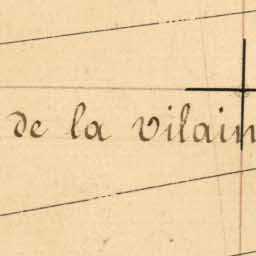 de la vilain